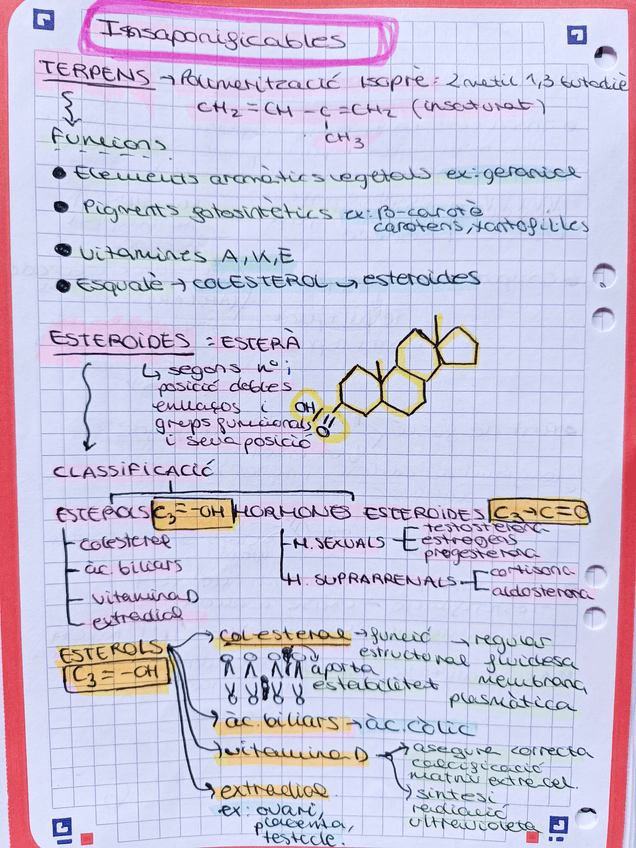 Insaponificables
TERPENS → Polimerització isoprè = 2 metil 1,3 butadiè
CH2 = CH - C = CH2 (insaturat)
CH3
Funcions
• Elements aromàtics vegetals ex: geraniol
• Pigments fotosintètics ex: β-carotè
carotens, xantofil·les
• Vitamines A, K, E
• Esqualè → COLESTEROL → esteroides
ESTEROIDES = ESTERÀ
↳ segons nº i
posició dobles
enllaços i
grups funcionals
i seva posició
OH
O
CLASSIFICACIÓ
ESTEROLS C3 = -OH HORMONES ESTEROIDES C3 → C = O
- colesterol
- àc. biliars
- vitamina D
- extradiol
- H. SEXUALS
testosterona
estrògens
progesterona
- H. SUPRARRENALS
cortisona
aldosterona
ESTEROLS
C3 = -OH
colesterol → funció
estructural
aporta
estabilitet
→ regular
fluïdesa
membrana
plasmàtica
àc. biliars → àc. còlic
vitamina D
→ asegura correcta
calcificació
matriu extrecel.
→ síntesi
radiació
ultravioleta
extradiol
ex: ovari,
placenta,
testicle.